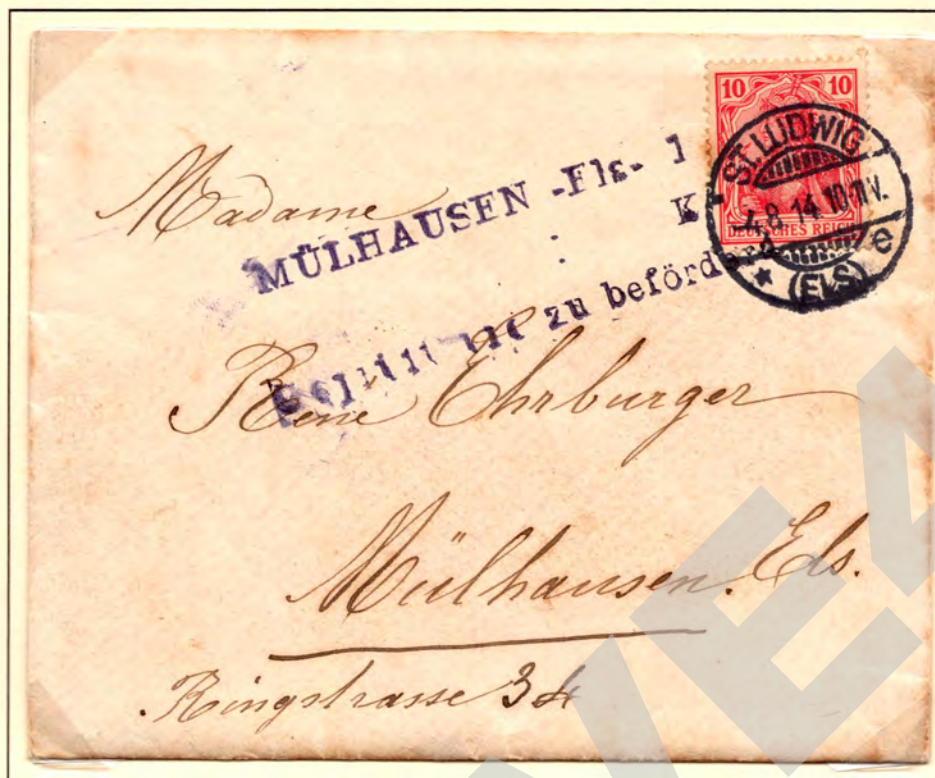 10 10
DEUTSCHES REICH
ST. LUDWIG
-4.8.14.10-11V.
* (ELS) e
MÜLHAUSEN -Els- 1
K
zu befördern
Madame
Rene Ehrburger
Mülhausen. Els.
Ringstrasse 34